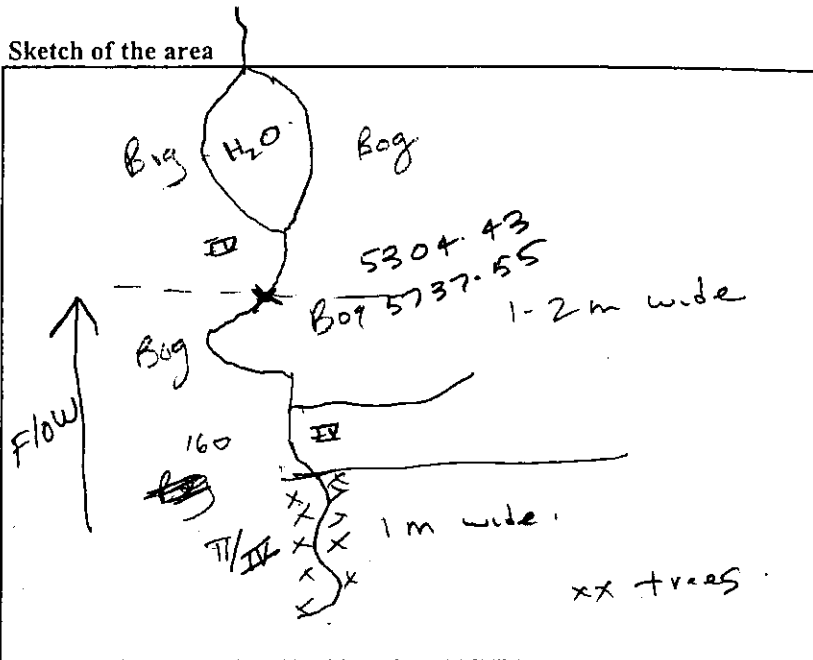 Sketch of the area
Bog H₂O. Bog
IV
5304.43
Bog 5737.55
1-2 m wide
Bog
Flow
IV
160
II/IV
1 m wide.
xx trees.